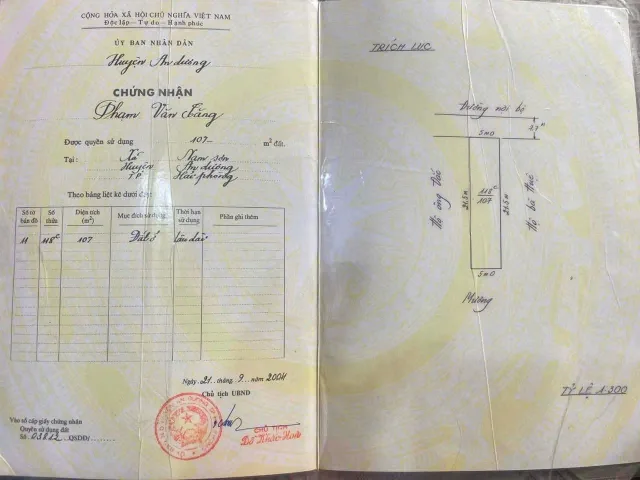 CỘNG HÒA XÃ HỘI CHỦ NGHĨA VIỆT NAM
Độc lập - Tự do - Hạnh phúc
ỦY BAN NHÂN DÂN
Huyện An dương
CHỨNG NHẬN
Phạm Văn
Được quyền sử dụng 107 m² đất.
Tại: Xã Nam sơn
Huyện An dương
TP Hải phòng
Theo bảng liệt kê dưới đây
Số tờ bản đồ
Số thửa
Diện tích (m²)
Mục đích sử dụng
Thời hạn sử dụng
Phần ghi thêm
11 118c 107 Đất ở lâu dài
Ngày 21 tháng 9 năm 2004
Chủ tịch UBND
CHỦ TỊCH
Vào sổ cấp giấy chứng nhận
Quyền sử dụng đất
Số 03812 QSDĐ/
TRÍCH LỤC
Đường nội bộ
5m0
118c
107
21.5m
21.5m
5m0
Mương
TỶ LỆ 1:300